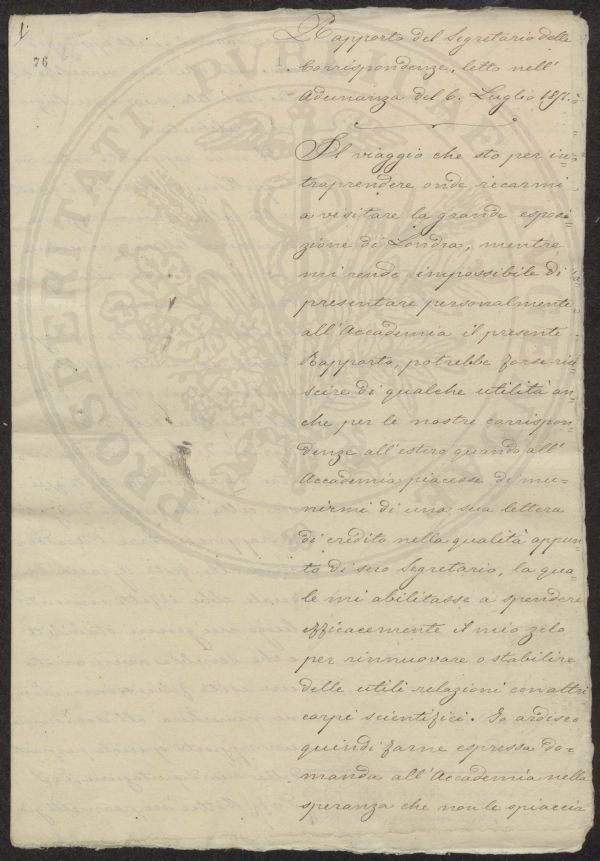 1
76
1.
Rapporto del Segretario delle
Corrispondenze, letto nell'
Adunanza del 6. Luglio
Il viaggio che sto per in-
traprendere onde recarmi
a visitare la grande esposi-
zione di Londra, mentre
mi rende impossibile di
presentare personalmente
all'Accademia il presente
Rapporto, potrebbe forse riu-
scire di qualche utilità an-
che per le nostre corrispon-
denze all'estero quando all'
Accademia piacesse di mu-
nirmi di una sua lettera
di credito nella qualità appun-
to di suo Segretario, la qua-
le mi abilitasse a spendere
efficacemente il mio zelo
per rinnuovare o stabilire
delle utili relazioni con altri
corpi scientifici. Io ardisco
quindi farne espressa do-
manda all'Accademia nella
speranza che non le spiaccia
PROSPERITATI PVBLICAE